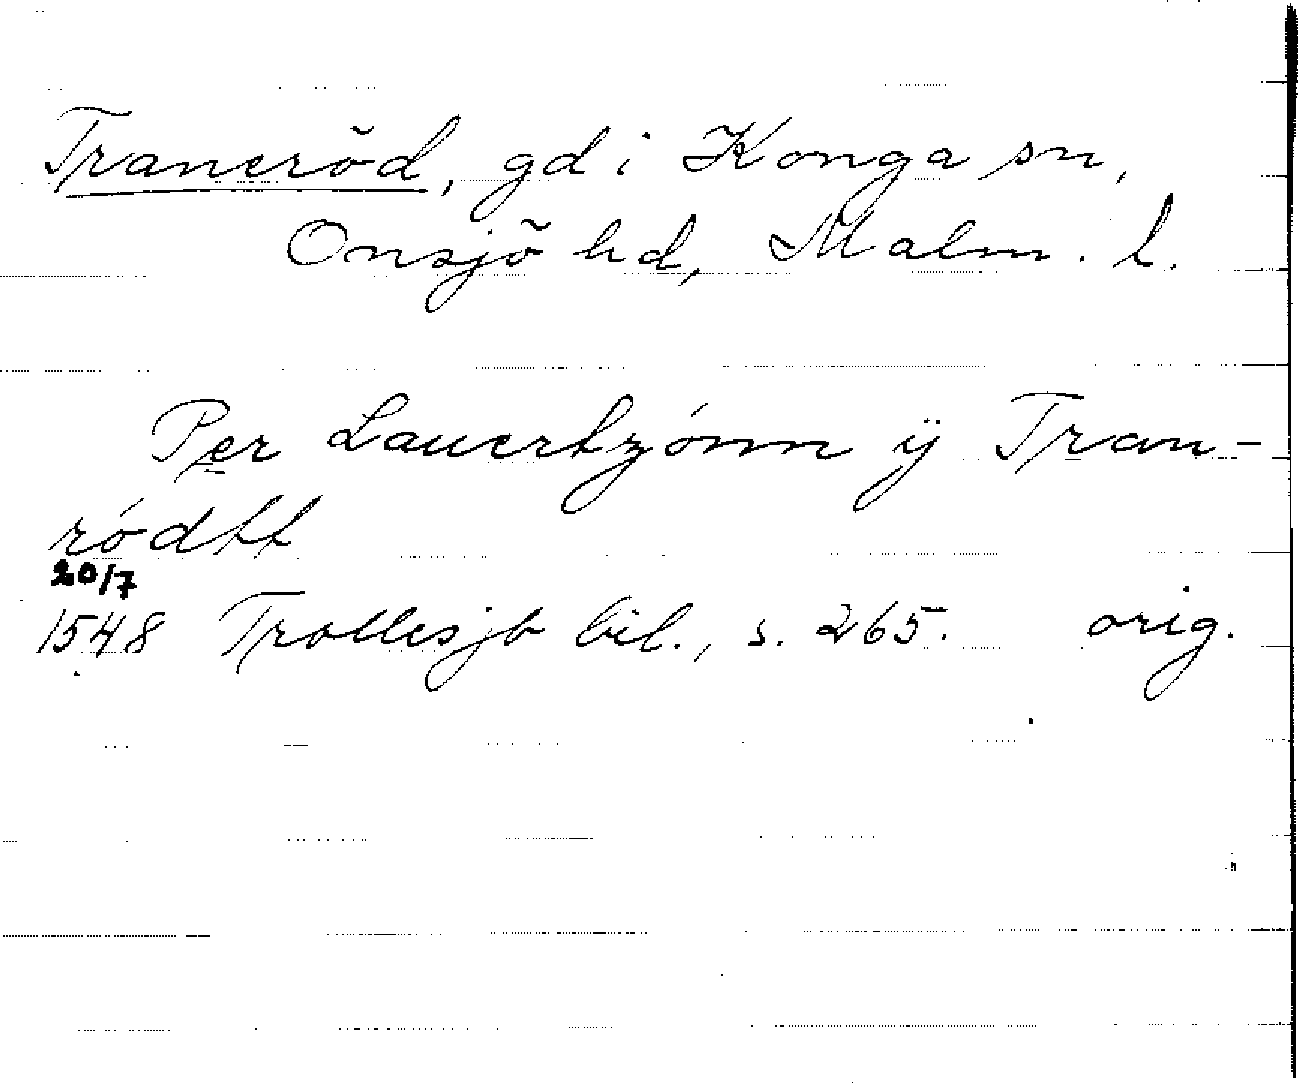 Traneröd, gd i Konga sn,
Onsjö hd, Malm. l.
Per Lauertzónn ÿ Tran-
ródtt
20/7
1548 Trollesjb bil., s. 265. orig.